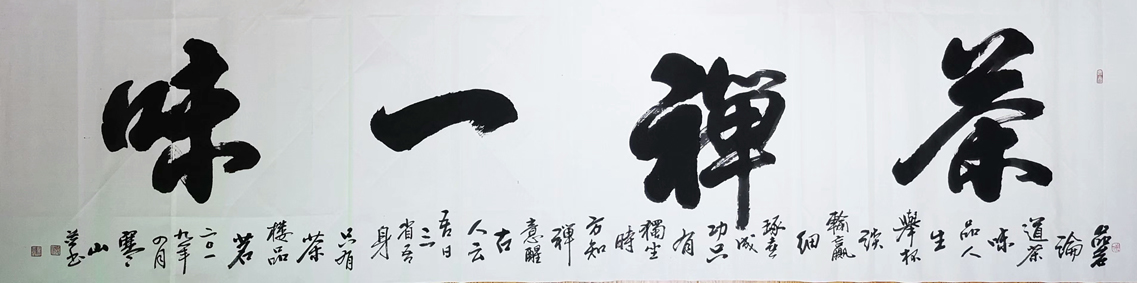 茶禪一味
論
道茶
味
品人
生
舉杯
談
輸贏
細
琢
成
功只
有
獨坐
時
方知
禪
意醒
古
人云
吾日
三
省吾
身
只有
茶
樓品
茗
二〇一
九年
四月
寒
山
書